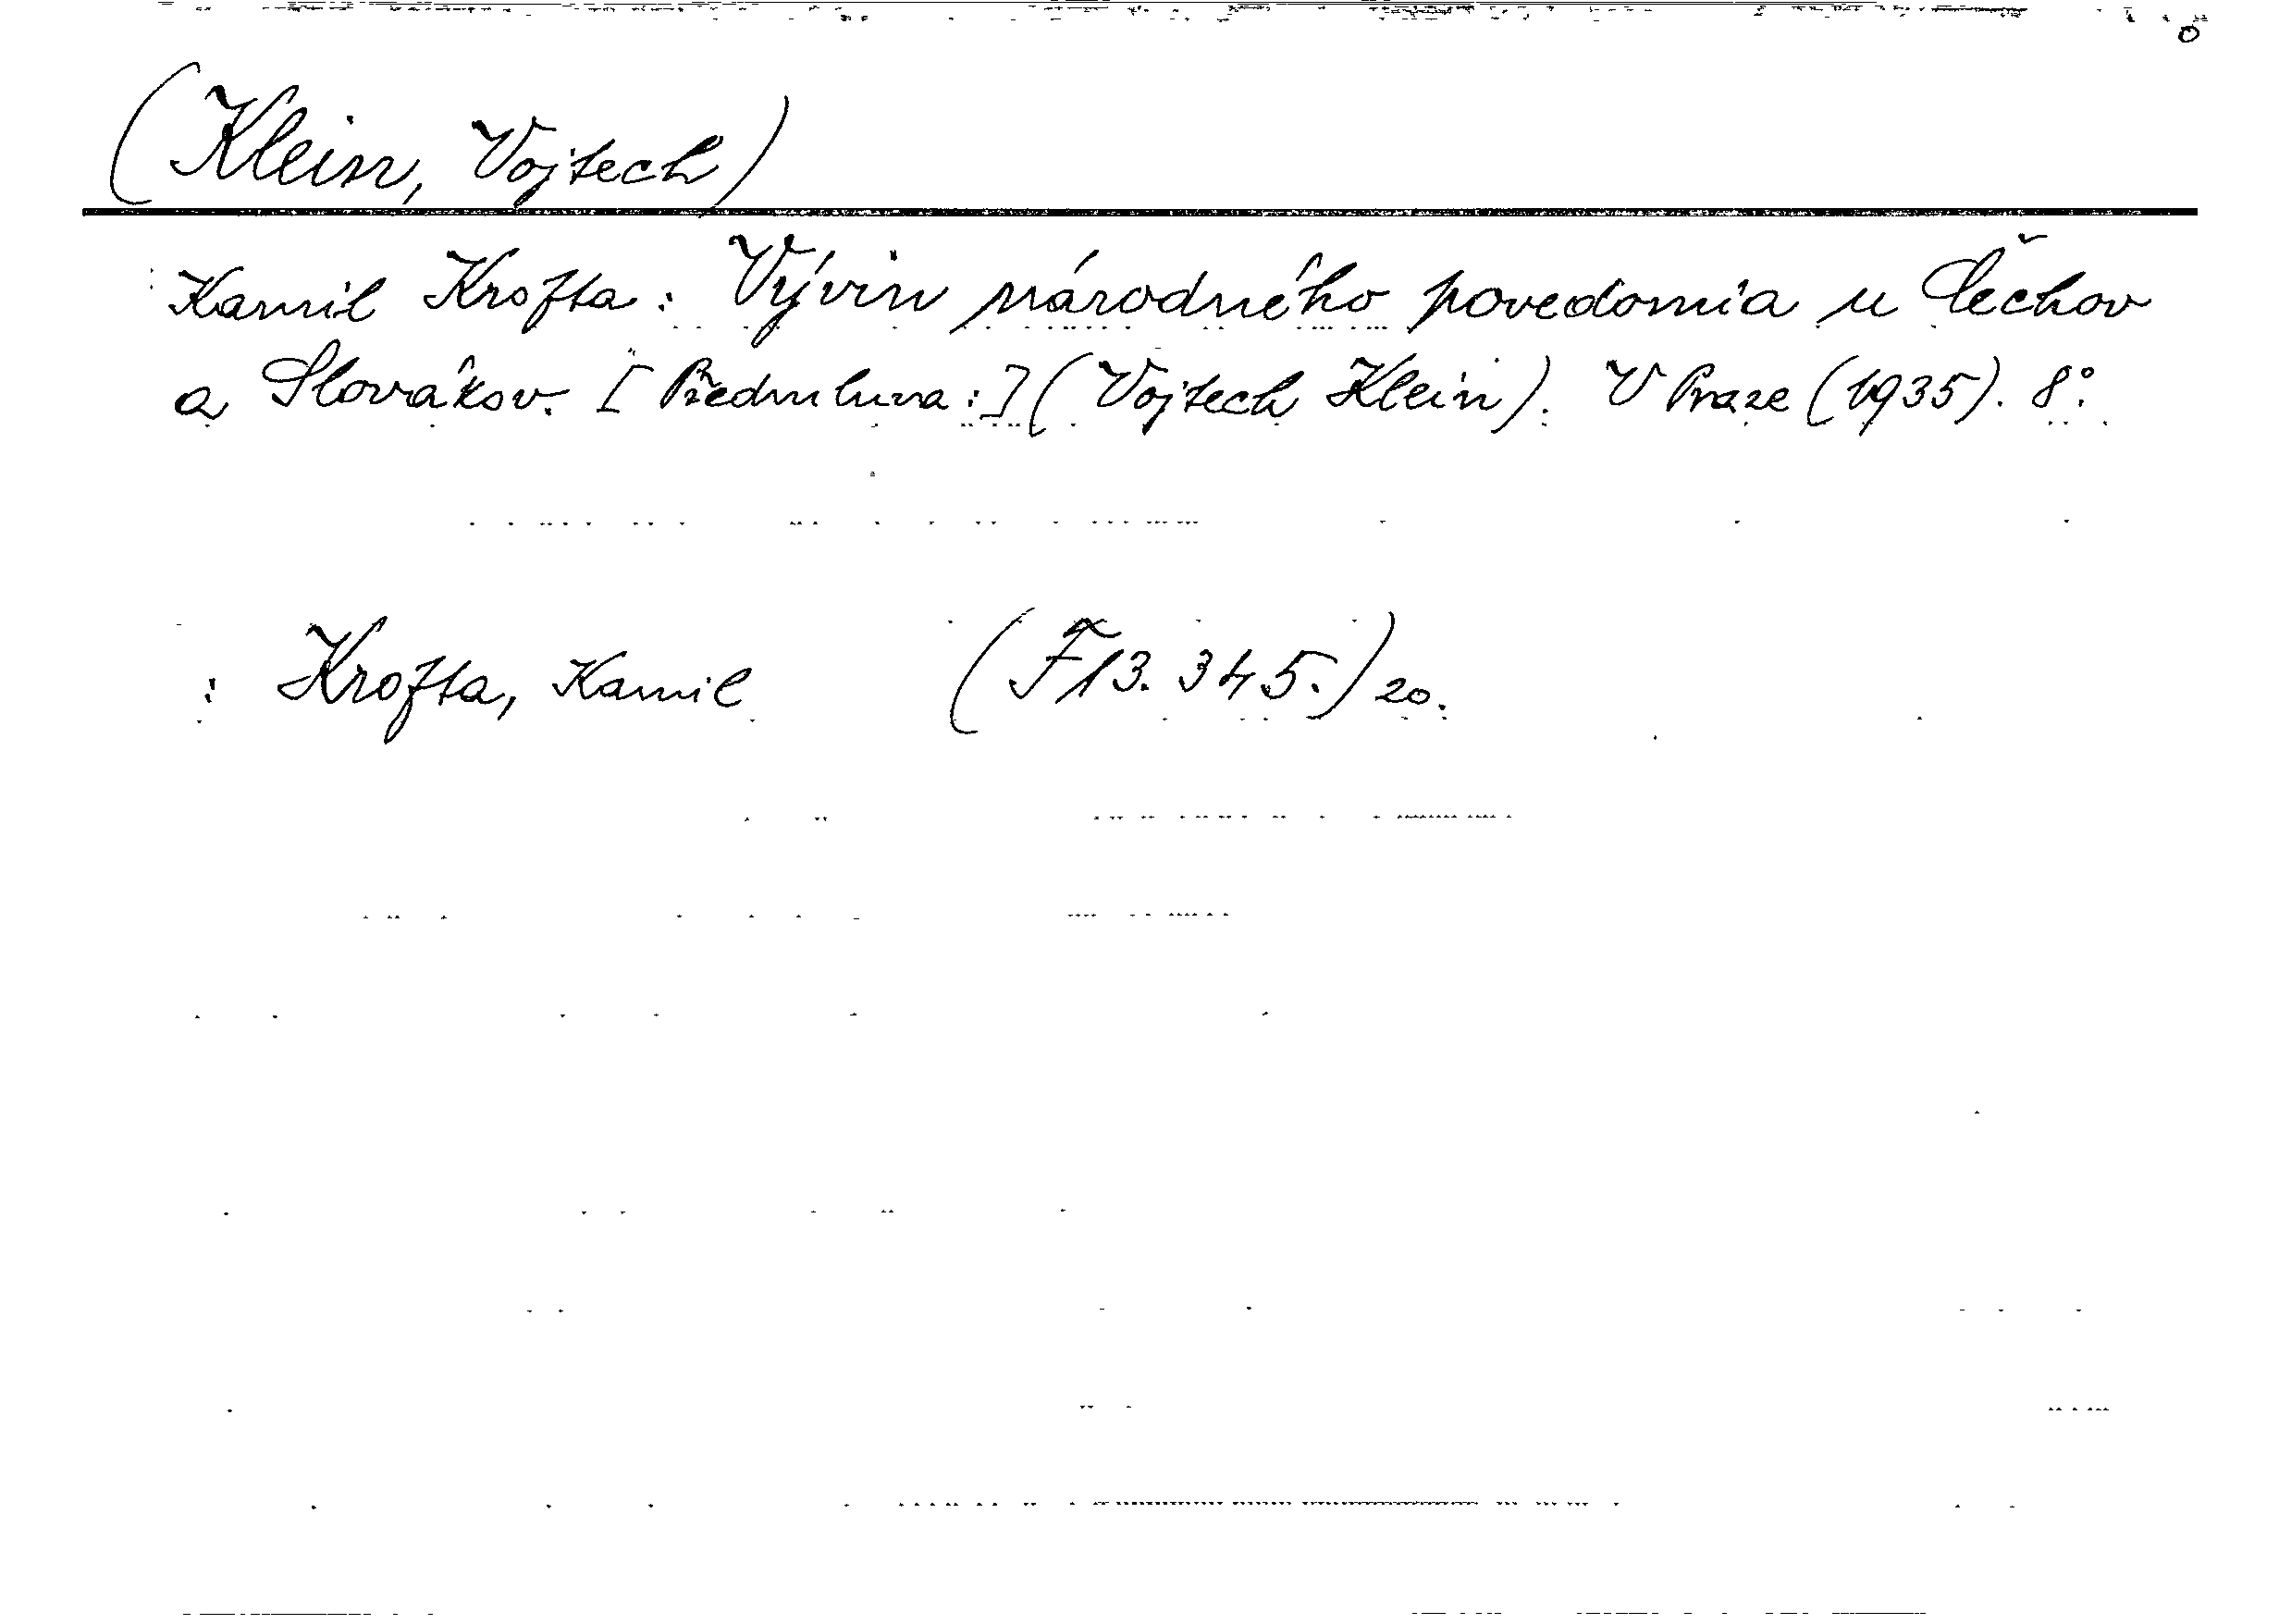 (Klein, Vojtech)
Kamil Krofta: Vývin národného povedomia u Čechov
a Slovákov. [Předmluva:] (Vojtech Klein). V Praze (1935). 8°.
: Krofta, Kamil (F13.345.) 20.